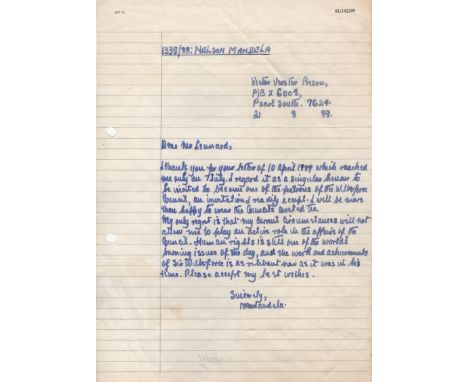 1335/88: NELSON MANDELA
Victor Verster Prison,
P/B X 6005,
Paarl South. 7624.
21 8 89.
Dear Mr Lennard,
I thank you for your letter of 10 April 1989 which reached
me only on July. I regard it as a singular honour to
be invited to become one of the patrons of the Wilberforce
Council, an invitation I readily accept. I will be more
than happy to wear the Councils tie.
My only regret is that my current circumstances will not
allow me to play an active role in the affairs of the
Council. Human rights is still one of the world's
burning issues of the day, and the work and achievements
of Sir Wilberforce is as relevant now as it was in his
time. Please accept my best wishes.
Sincerely,
NRMandela.